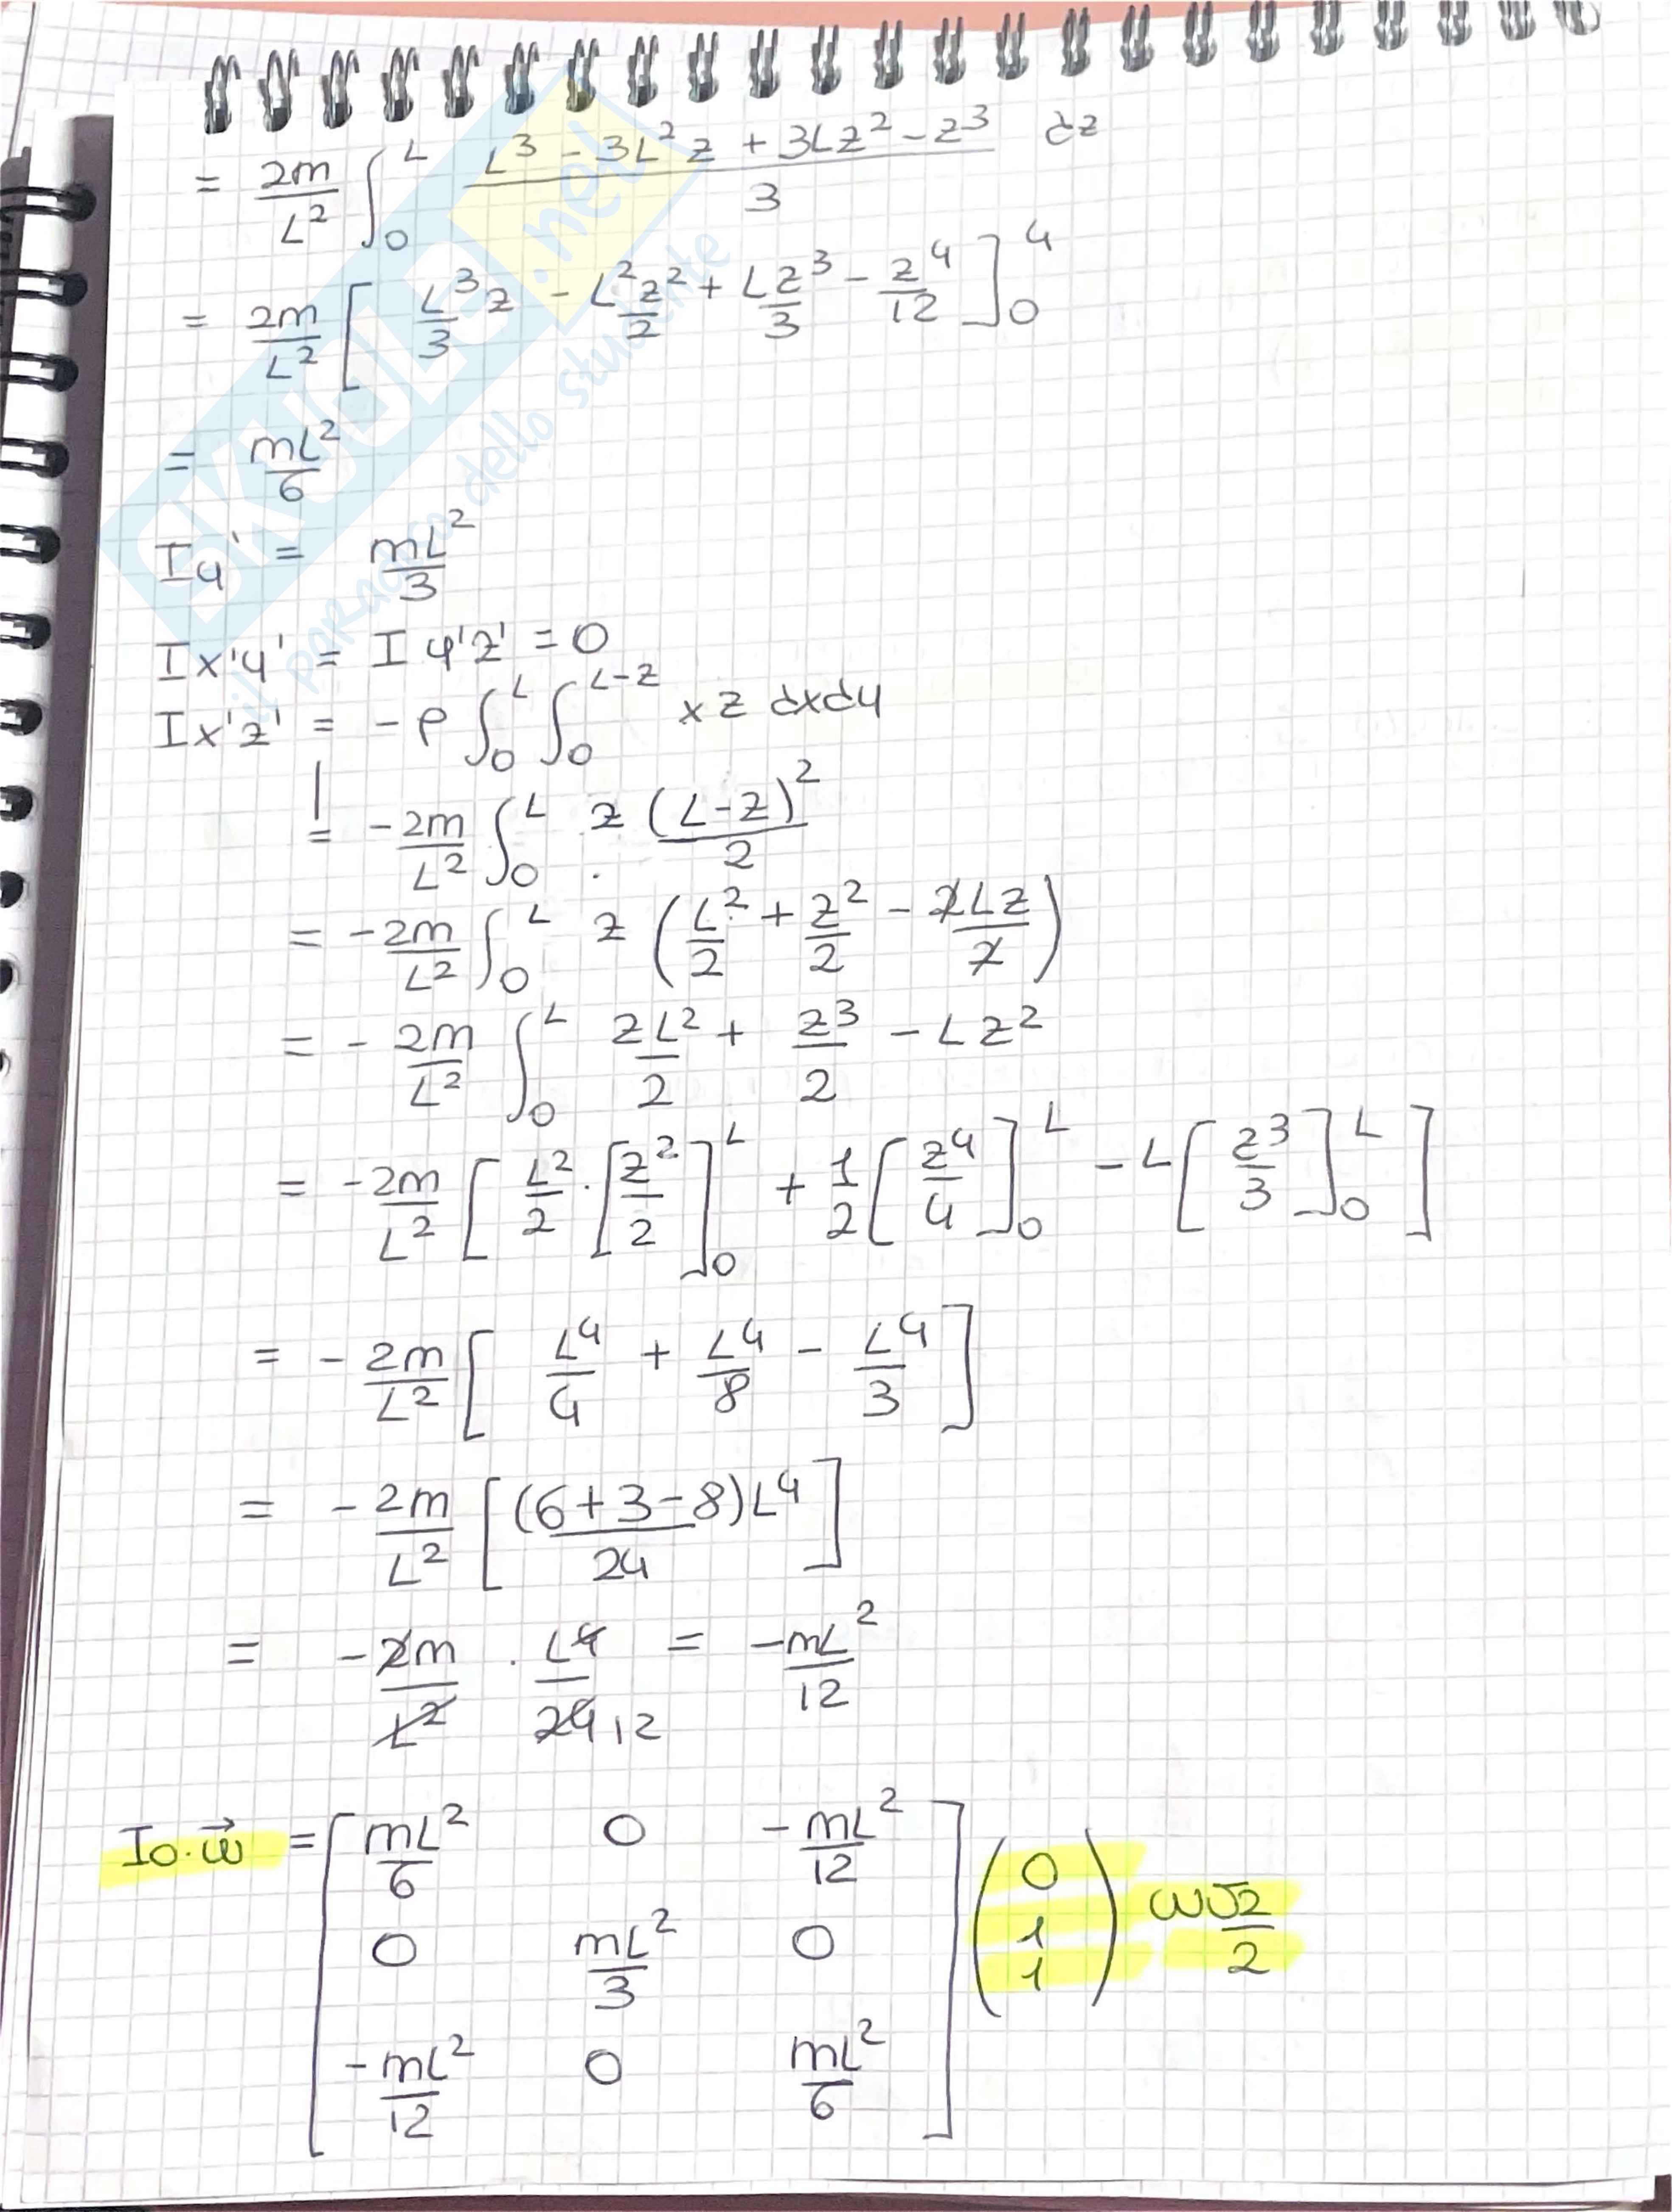 = 2m/L² ∫₀ᴸ (L³ - 3L²z + 3Lz² - z³)/3 dz
= 2m/L² [ L³/3 z - L²z²/2 + Lz³/3 - z⁴/12 ]₀⁴
= mL²/6
Iy' = mL²/3
Ix'y' = Iy'z' = 0
Ix'z' = -ρ ∫₀ᴸ ∫₀ᴸ⁻ᶻ xz dxdy
= -2m/L² ∫₀ᴸ z (L-z)²/2
= -2m/L² ∫₀ᴸ z (L²/2 + z²/2 - 2Lz/2)
= - 2m/L² ∫₀ᴸ zL²/2 + z³/2 - Lz²
= -2m/L² [ L²/2 · [z²/2]₀ᴸ + 1/2 [z⁴/4]₀ᴸ - L[z³/3]₀ᴸ ]
= - 2m/L² [ L⁴/4 + L⁴/8 - L⁴/3 ]
= - 2m/L² [ (6+3-8)L⁴/24 ]
= - 2m/L² · L⁴/24 12 = -mL²/12
Io·ω⃗ = [ mL²/6 0 -mL²/12 ] (0) ω√2/2
[ 0 mL²/3 0 ] (1)
[ -mL²/12 0 mL²/6 ] (1)
SKUOLA.net
il paradiso dello studente